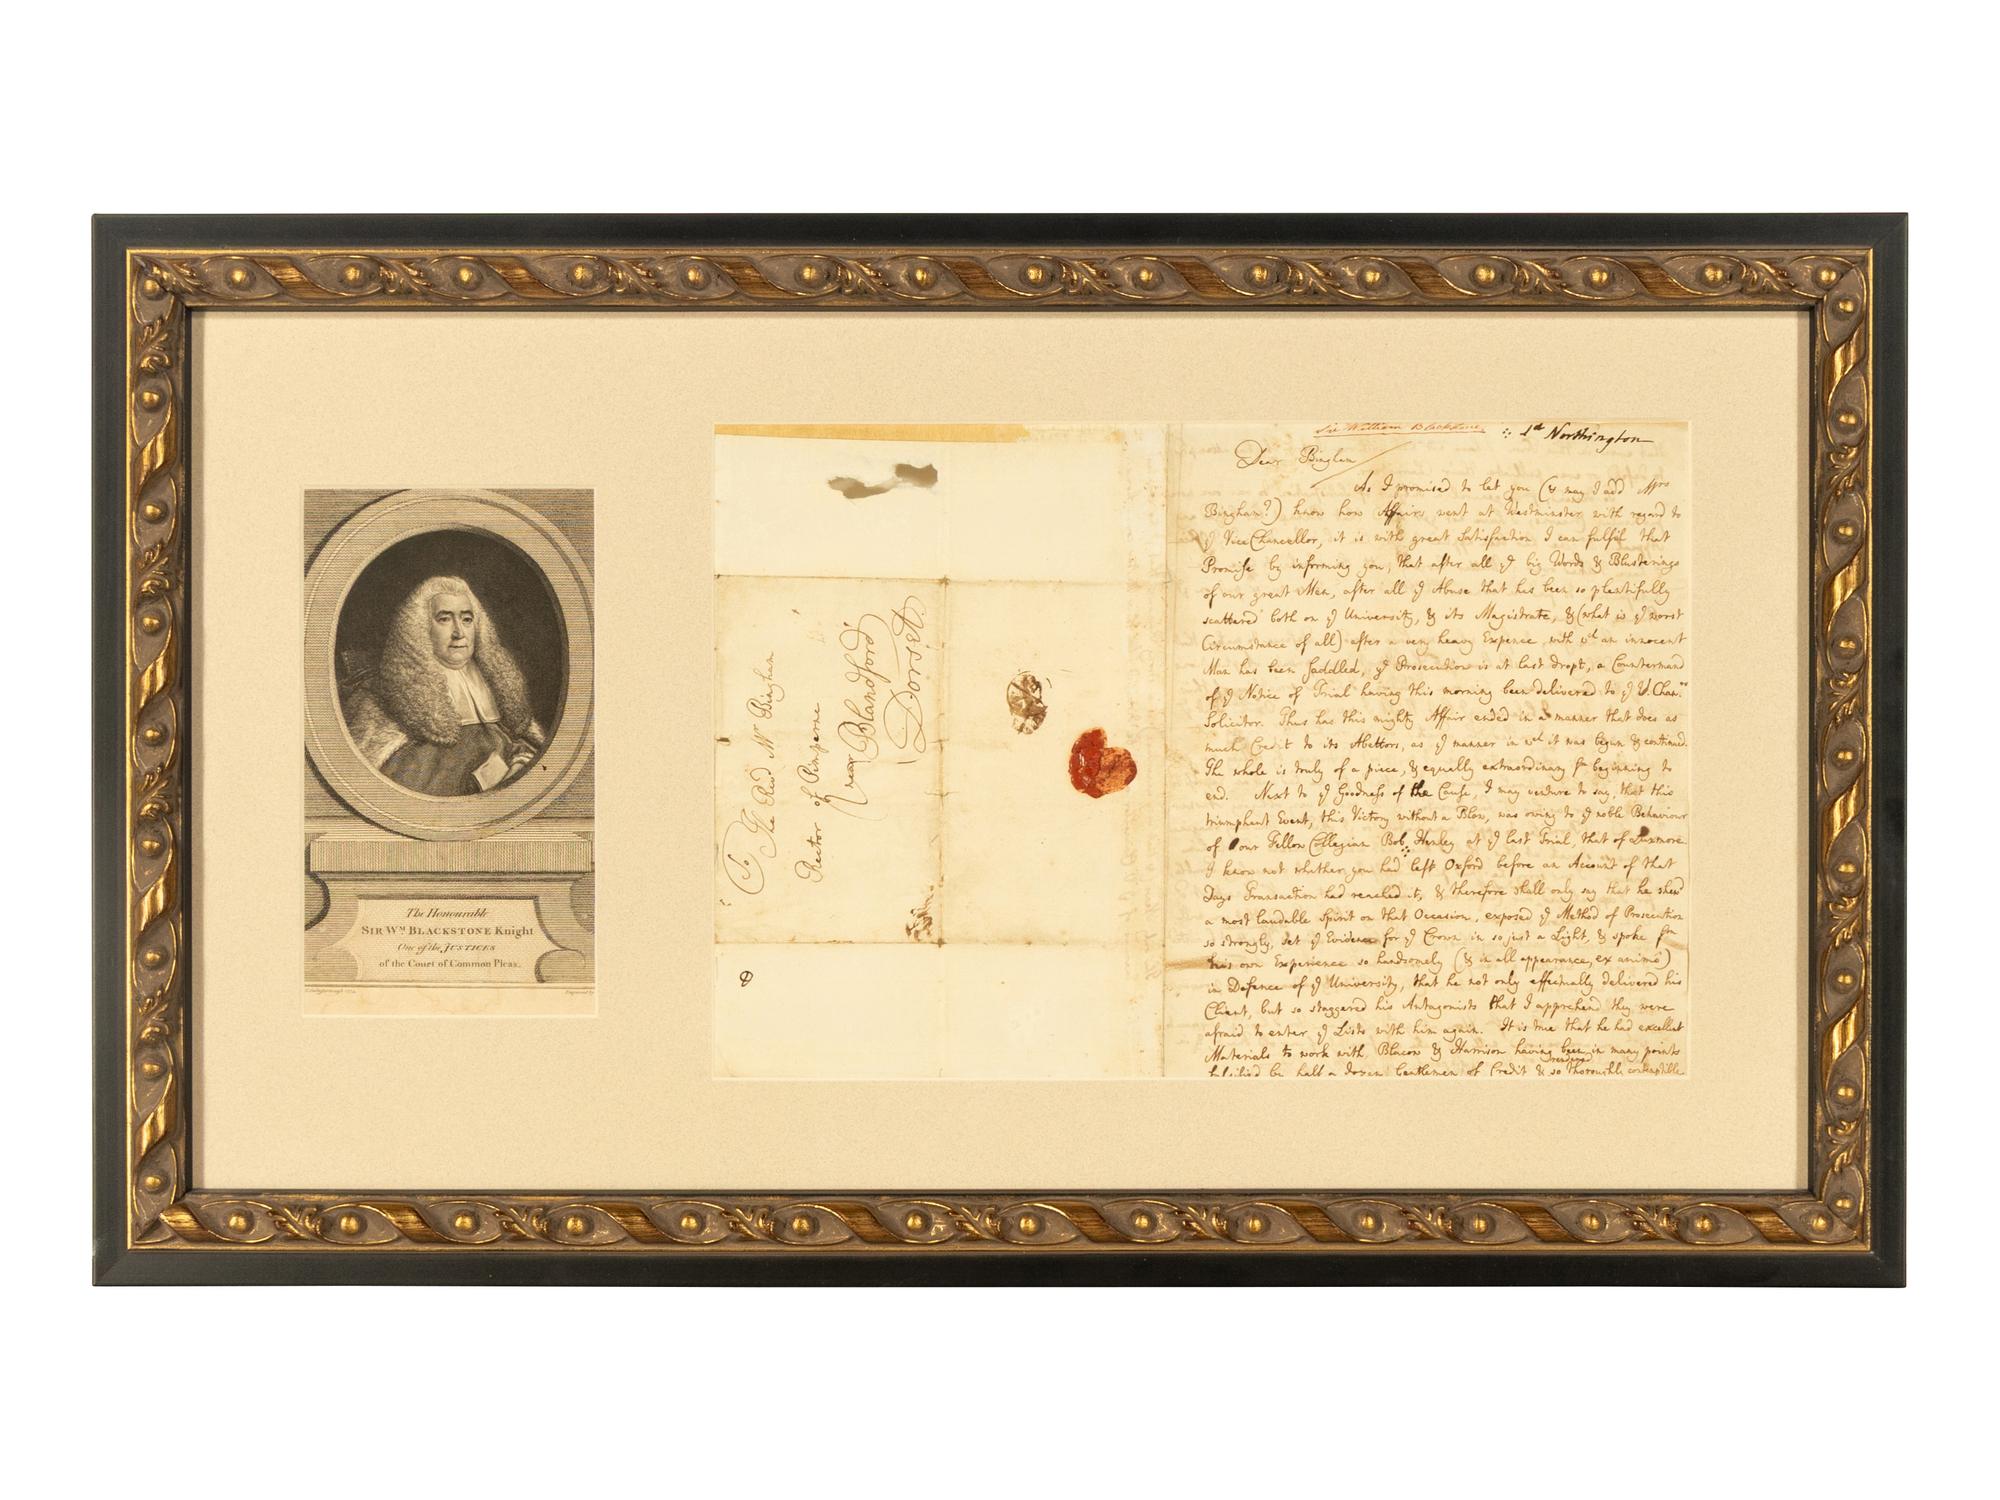 The Honourable
SIR Wᴹ BLACKSTONE Knight
One of the JUSTICES
of the Court of Common Pleas.
Engraved by
To
The Revd Mr Bingham
Rector of Pimperne
near Blandford
Dorset.
Sir William Blackstone
Ld Northington
Dear Bingham
As I promised to let you (& may I add Mrs
Bingham?) know how Affairs went at Westminster with regard to
ye Vice Chancellor, it is with great Satisfaction I can fulfil that
Promise by informing you, that after all ye big Words & Blusterings
of our great Men, after all ye Abuse that has been so plentifully
scattered both on ye University, & its Magistrate, & (what is ye worst
Circumstance of all) after a very heavy Expence, with wch an innocent
Man has been saddled, ye Prosecution is at last dropt, a Countermand
of ye Notice of Trial having this morning been delivered to ye V. Chan.rs
Solicitor. Thus has this mighty Affair ended in a manner that does as
much Credit to its Abettors, as ye manner in wch it was begun & continued.
The whole is truly of a piece, & equally extraordinary fm beginning to
end. Next to ye Goodness of the Cause, I may venture to say, that this
triumphant Event, this Victory without a Blow, was owing to ye noble Behaviour
of our Fellow Collegian Bob. Henley at ye last Trial, that of Luxmore.
I know not whether you had left Oxford before an Account of that
Days Transaction had reached it, & therefore shall only say that he shewd
a most laudable Spirit on that Occasion, exposed ye Method of Prosecution
so strongly, set ye Evidence for ye Crown in so just a Light, & spoke fm
his own Experience so handsomely (& in all appearance, ex animo)
in Defence of ye University, that he not only effectually delivered his
Client, but so staggered his Antagonists that I apprehend they were
afraid to enter ye Lists with him again. It is true that he had excellent
Materials to work with, Blacow & Harrison having been in many points
falsified by half a dozen Gentlemen of Credit & so thoroughly rendered contemptible